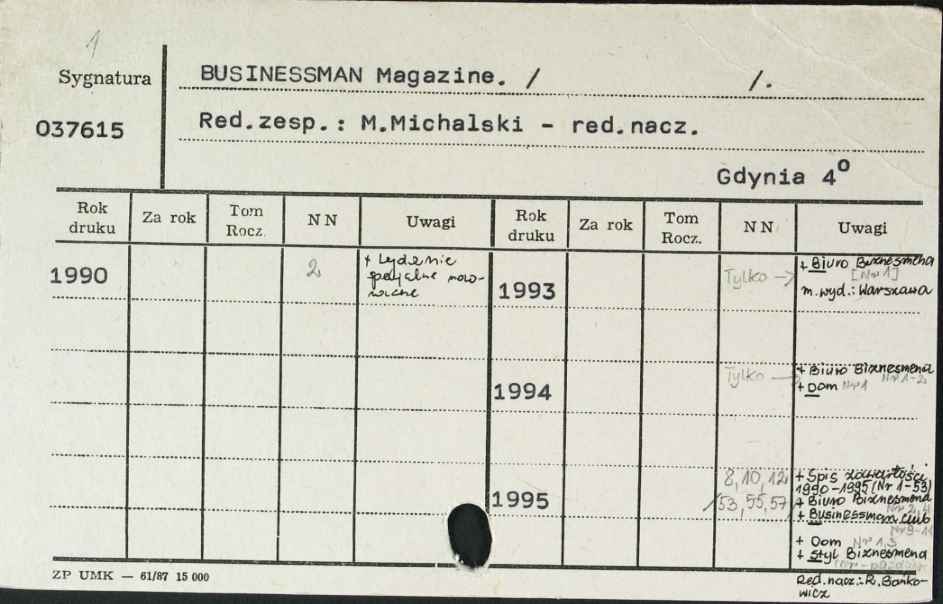 1
Sygnatura
BUSINESSMAN Magazine. / /.
037615
Red.zesp.: M.Michalski - red.nacz.
Gdynia 4°
Rok druku Za rok Tom Rocz. N N Uwagi Rok druku Za rok Tom Rocz. N N Uwagi
1990 2 + wydanie
specjalne nowo-
1993 Tylko → + Biuro Biznesmena
[Nr 1]
m.wyd.: Warszawa
1994 Tylko → + Biuro Biznesmena
Nr 1-2
+ Dom Nr 1
1995 8, 10, 12 + Spis zawartości
1990-1995 (Nr 1-53)
/53, 55, 57/ + Biuro Biznesmena
+ Businessman club
+ Dom Nr 1.3
+ Styl Biznesmena
ZP UMK — 61/87 15 000
Red.nacz.: R. Bańko-
wicz